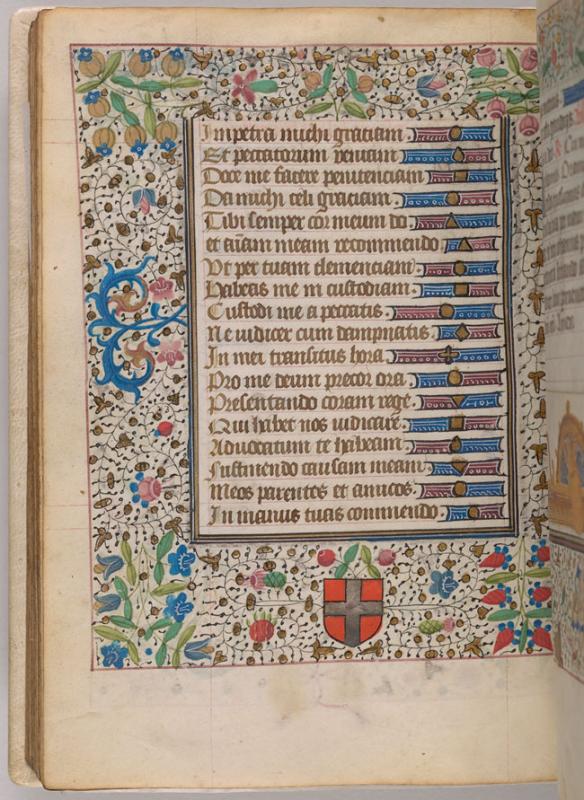 Impetra michi graciam.
Et peccatorum veniam.
Doce me facere penitenciam
Da michi celi graciam.
Tibi semper cor meum do
et aīam meam recommendo
Vt per tuam clemenciam.
Habeas me in custodiam.
Custodi me a peccatis.
Ne iudicer cum dampnatis.
In mei transitus hora.
Pro me deum precor ora.
Presentando coram rege.
Qui habet nos iudicare.
Aduocatum te habeam
Sustinendo causam meam.
Meos parentes et amicos.
In manus tuas commendo.